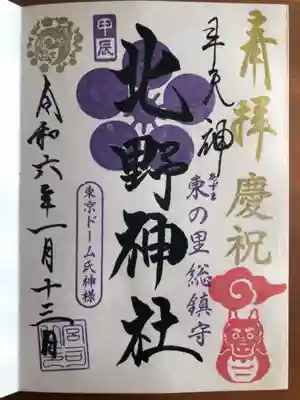 奉拝慶祝
牛天神
東の里総鎮守
あずま
甲辰
北野神社
東京ドーム氏神様
令和六年一月十三日
宮司